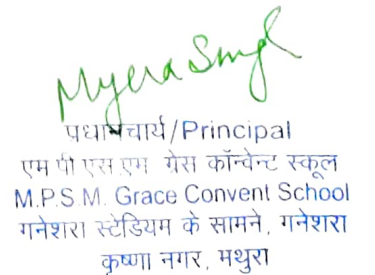 Myera Singh
प्रधानाचार्य/Principal
एम पी एस.एम ग्रेस कॉन्वेन्ट स्कूल
M.P.S.M. Grace Convent School
गनेशरा स्टेडियम के सामने, गनेशरा
कृष्णा नगर, मथुरा